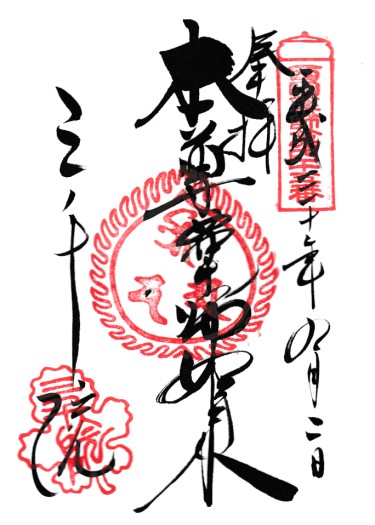 平成二十年九月二日
奉拝
本尊薬師如来
三千院